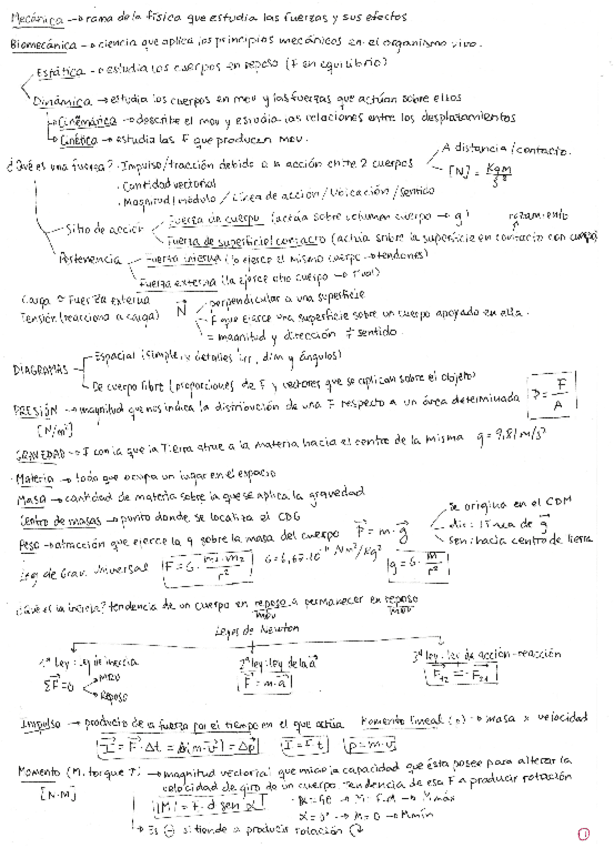 Mecánica → rama de la física que estudia las fuerzas y sus efectos
Biomecánica → ciencia que aplica los principios mecánicos en el organismo vivo.
Estática → estudia los cuerpos en reposo (F en equilibrio)
Dinámica → estudia los cuerpos en mov y las fuerzas que actúan sobre ellos
Cinemática → describe el mov y estudia las relaciones entre los desplazamientos
Cinética → estudia las F que producen mov.
¿Qué es una fuerza? · Impulso/tracción debido a la acción entre 2 cuerpos
A distancia/contacto.
[N] = Kg m / s²
· Cantidad vectorial
· Magnitud/módulo / Línea de acción / Ubicación / Sentido
Sitio de acción
Fuerza de cuerpo (actúa sobre volumen cuerpo → g) rozamiento
Fuerza de superficie/contacto (actúa sobre la superficie en contacto con cuerpo)
Pertenencia
Fuerza interna (lo ejerce el mismo cuerpo → tendones)
Fuerza externa (la ejerce otro cuerpo →
Carga = Fuerza externa
Tensión (reacciona a carga)
N
perpendicular a una superficie
F que ejerce una superficie sobre un cuerpo apoyado en ella.
= magnitud y dirección ≠ sentido.
DIAGRAMAS
Espacial (simple, detalles dim y ángulos)
De cuerpo libre (proporciones de F y vectores que se aplican sobre el objeto)
PRESIÓN → magnitud que nos indica la distribución de una F respecto a un área determinada P = F / A
[N/m²]
GRAVEDAD → F con la que la Tierra atrae a la materia hacia el centro de la misma g = 9,81 m/s²
· Materia → todo que ocupa un lugar en el espacio
Masa → cantidad de materia sobre la que se aplica la gravedad
Centro de masas → punto donde se localiza el CDG
Peso → atracción que ejerce la g sobre la masa del cuerpo P = m · g
Se origina en el CDM
dir: línea de g
sen: hacia centro de tierra
Ley de Grav. Universal F = G · m₁·m₂ / r² G = 6,67·10⁻¹¹ N m²/Kg² g = G · m / r²
¿Qué es la inercia? tendencia de un cuerpo en reposo a permanecer en reposo
mov mov
Leyes de Newton
1ª ley: ley de inercia
ΣF = 0
MRU
Reposo
2ª ley: ley de la a
F = m · a
3ª ley: ley de acción-reacción
F₁₂ = - F₂₁
Impulso → producto de la fuerza por el tiempo en el que actúa Momento lineal (p) → masa x velocidad
I = F · Δt = Δ(m·v) = Δp I = F t p = m · v
Momento (M. torque T) → magnitud vectorial que mide la capacidad que ésta posee para alterar la
[N·M]
velocidad de giro de un cuerpo. Tendencia de esa F a producir rotación
|M| = F · d sen α
· α = 90 → M = F·M → M máx
α = 0° → M = 0 → M mín
Es ⊖ si tiende a producir rotación
1